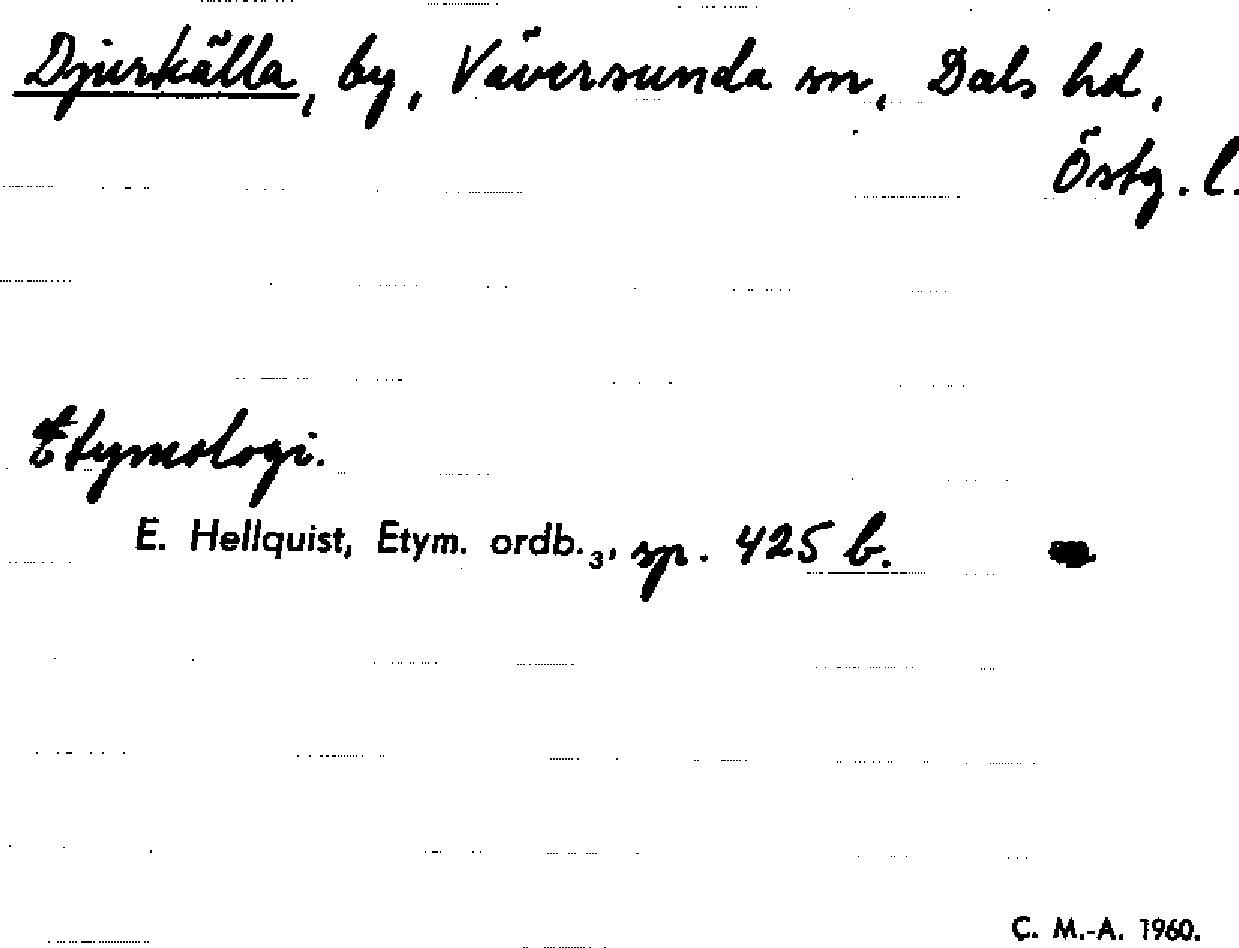 Djurkälla, by, Väversunda sn, Dals hd,
Östg. l.
Etymologi.
E. Hellquist, Etym. ordb.₃, sp. 425 b.
C. M.-A. 1960.